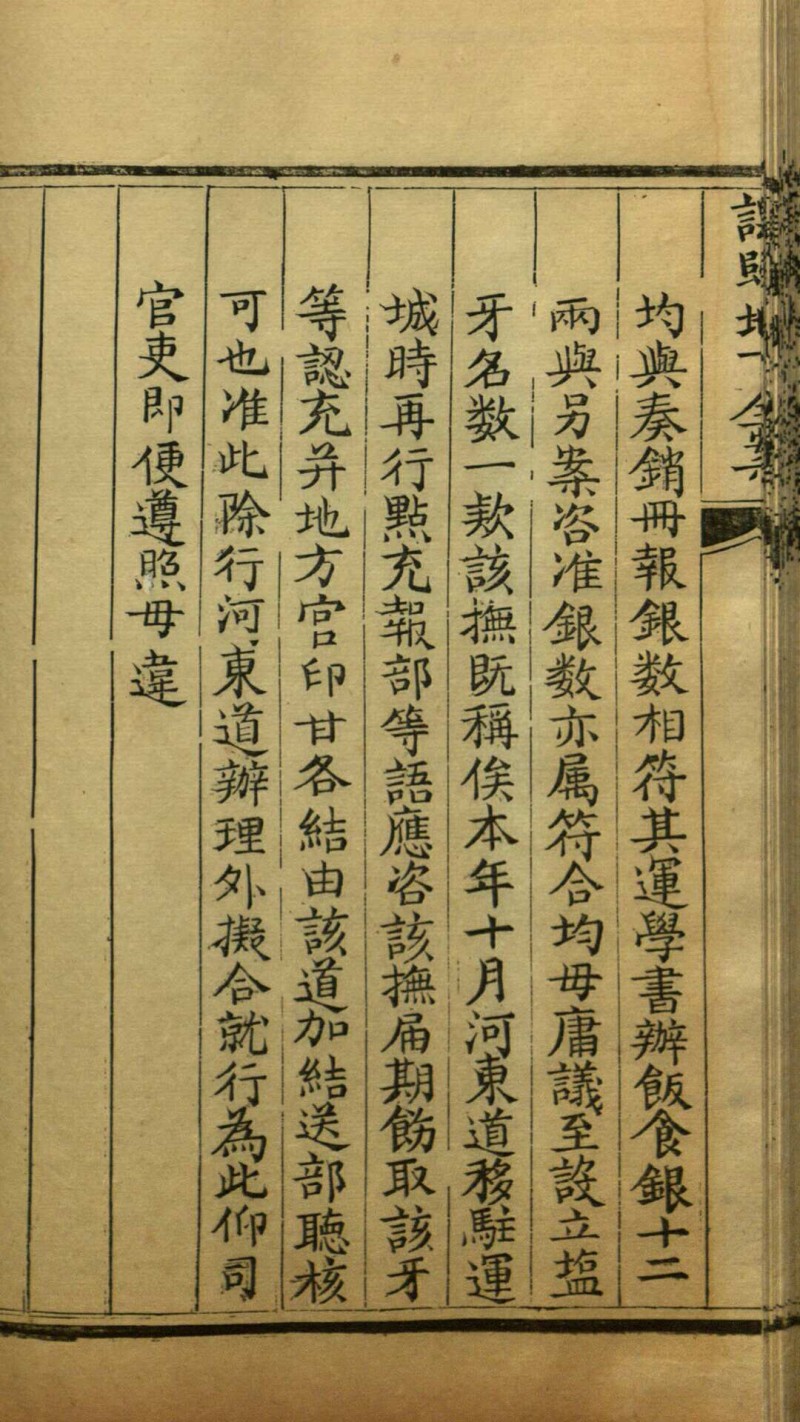 均與奏銷冊報銀数相符其運學書辦飯食銀十二
兩與另案咨准銀数亦属符合均毋庸議至設立塩
牙名数一欵該撫既稱俟本年十月河東道移駐運
城時再行點充報部等語應咨該撫届期飭取該牙
等認充并地方官印甘各結由該道加結送部聽核
可也准此除行河東道辦理外擬合就行為此仰司
官吏即便遵照毋違